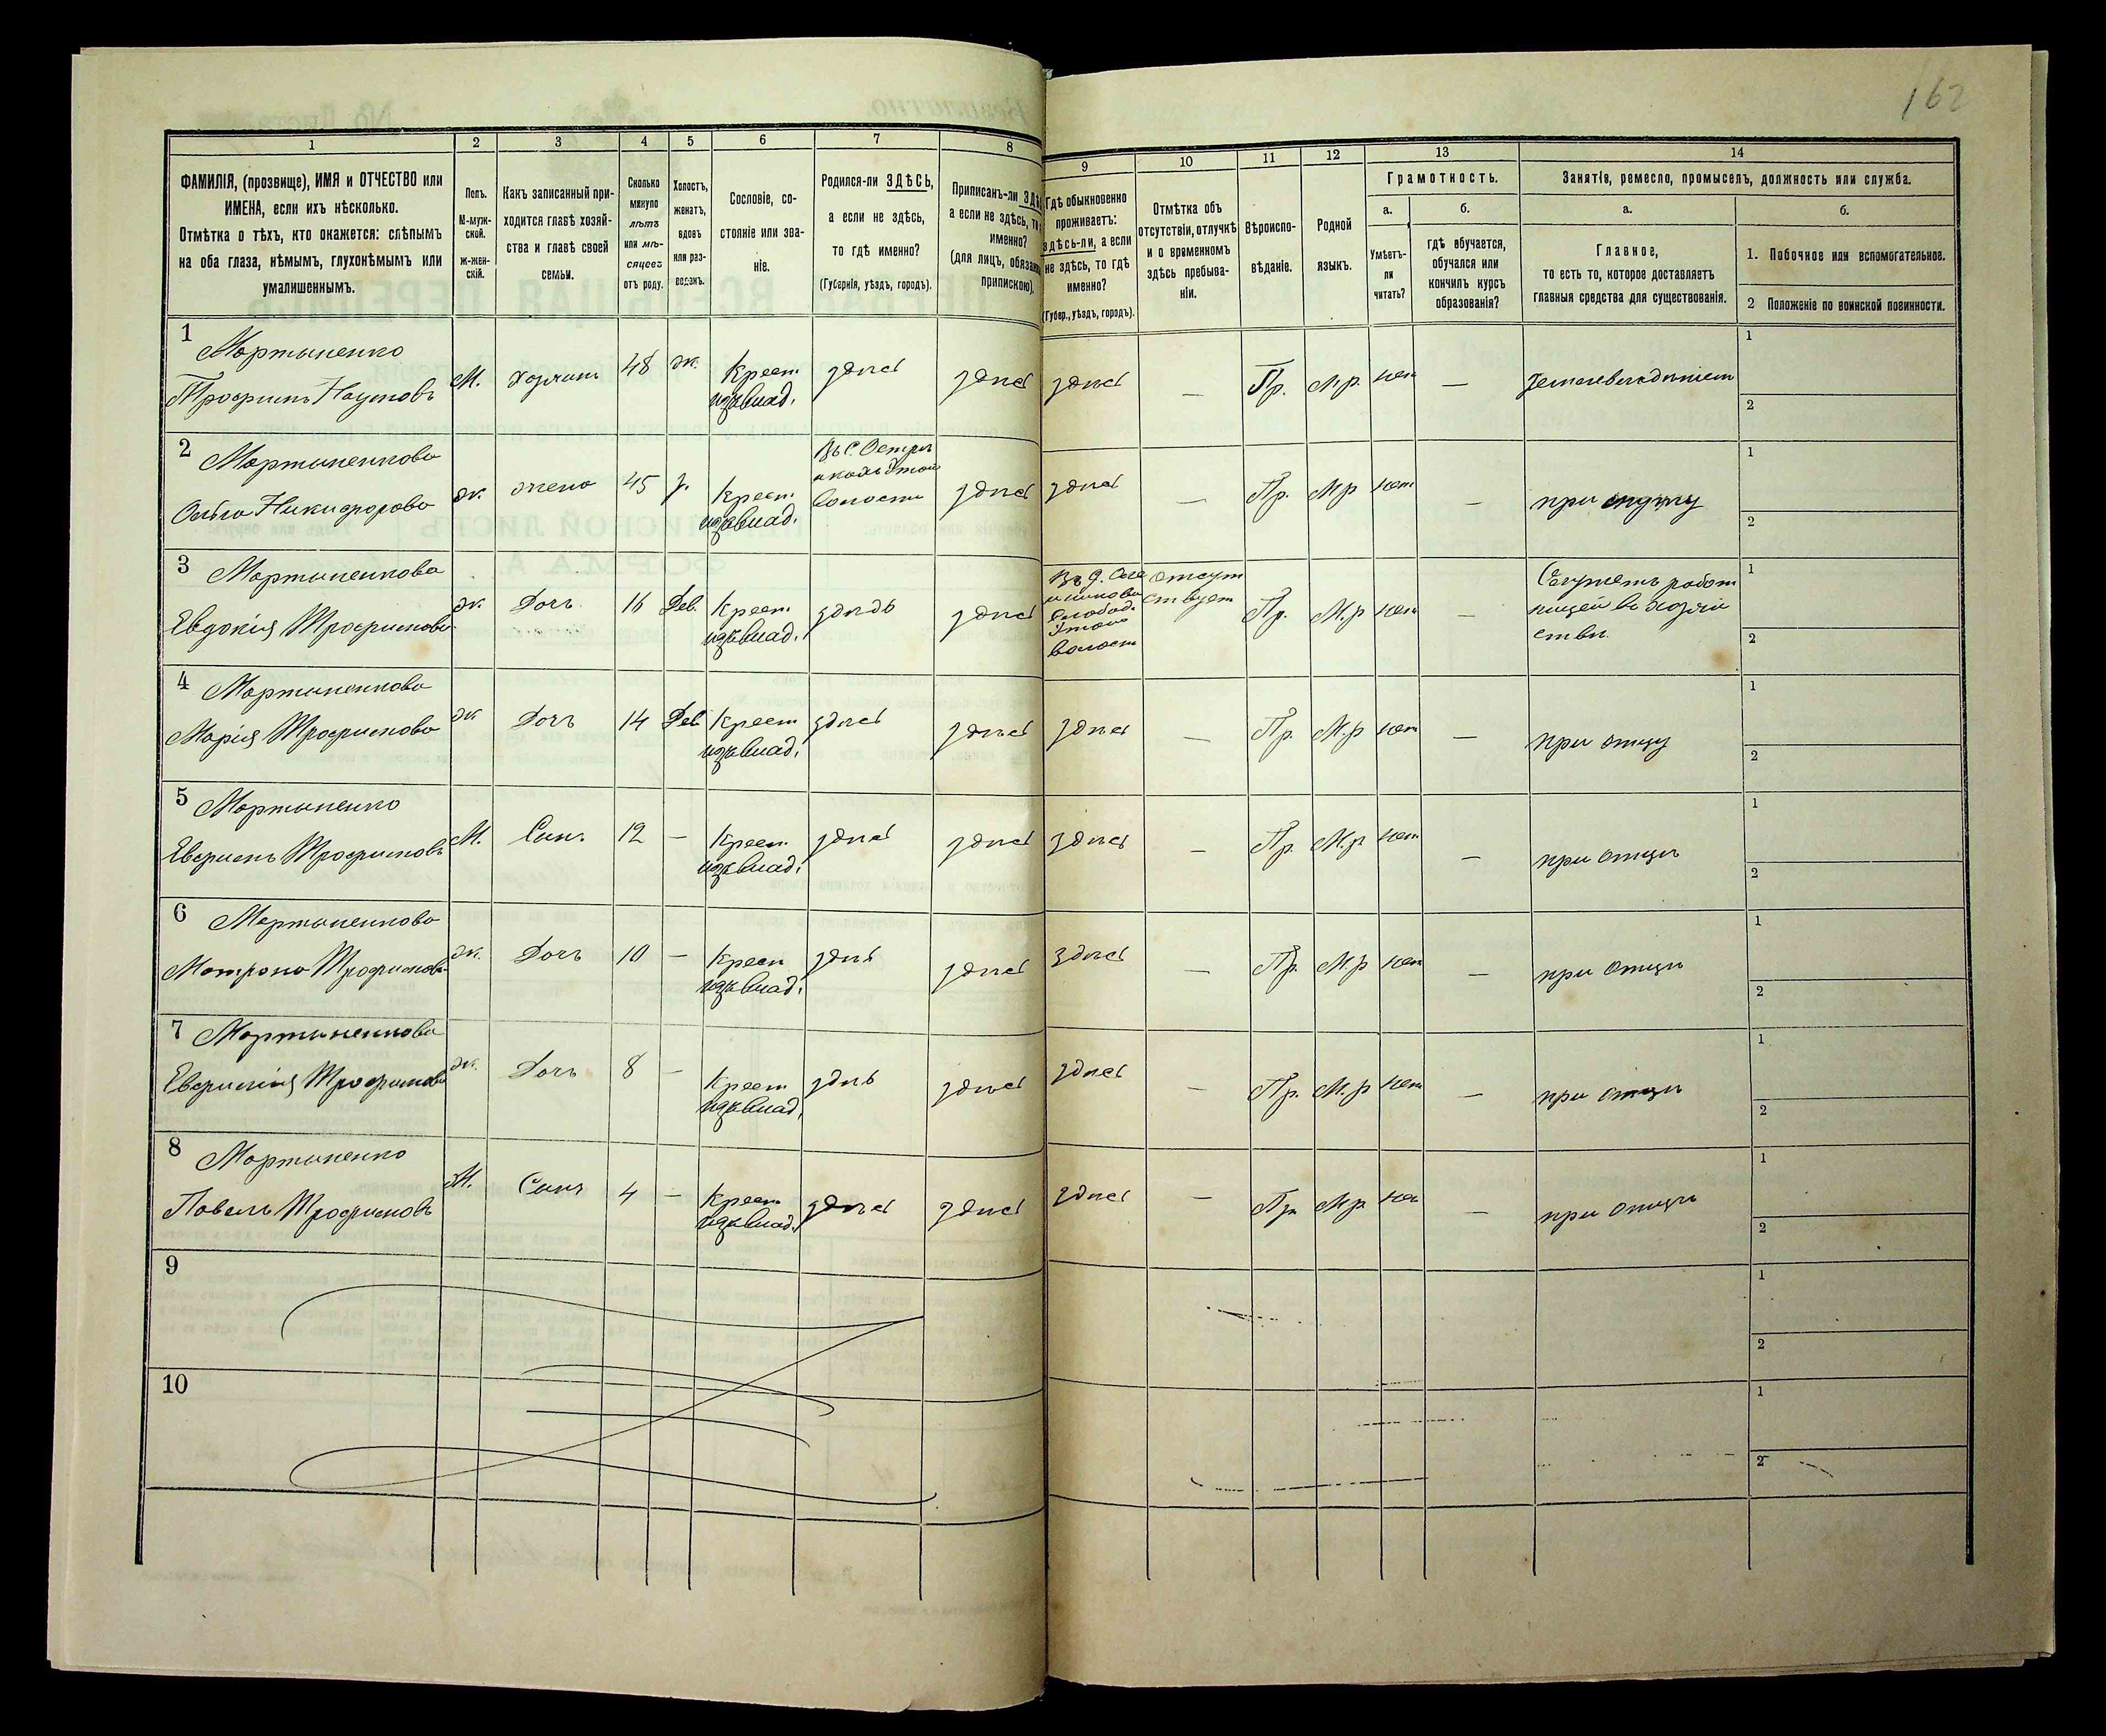 162
1
2
3
4
5
6
7
8
9
10
11
12
13
14
ФАМИЛІЯ, (прозвище), ИМЯ и ОТЧЕСТВО или
ИМЕНА, если ихъ нѣсколько.
Отмѣтка о тѣхъ, кто окажется: слѣпымъ
на оба глаза, нѣмымъ, глухонѣмымъ или
умалишеннымъ.
Полъ.
М-муж-
ской.
Ж-жен-
скій.
Какъ записанный при-
ходится главѣ хозяй-
ства и главѣ своей
семьи.
Сколько
минуло
лѣтъ
или мѣ-
сяцевъ
отъ роду.
Холостъ,
женатъ,
вдовъ
или раз-
веденъ.
Сословіе, со-
стояніе или зва-
ніе.
Родился-ли ЗДѢСЬ,
а если не здѣсь,
то гдѣ именно?
(Губернія, уѣздъ, городъ).
Приписанъ-ли ЗДѢ
а если не здѣсь, то
именно?
(для лицъ, обязан
припискою).
Гдѣ обыкновенно
проживаетъ:
здѣсь-ли, а если
не здѣсь, то гдѣ
именно?
(Губер., уѣздъ, городъ).
Отмѣтка объ
отсутствіи, отлучкѣ
и о временномъ
здѣсь пребыва-
ніи.
Вѣроиспо-
вѣданіе.
Родной
языкъ.
Грамотность.
а.
Умѣетъ-
ли
читать?
б.
гдѣ обучается,
обучался или
кончилъ курсъ
образованія?
Занятіе, ремесло, промыселъ, должность или служба.
а.
Главное,
то есть то, которое доставляетъ
главныя средства для существованія.
б.
1. Побочное или вспомогательное.
2 Положеніе по воинской повинности.
1
Мартыненко
Трофимъ Наумовъ
М. Хозяинъ 48 ж. Крест.
из. влад.
здѣсь здѣсь здѣсь — Пр. М.р. нет — Земледѣліем
1
2
2
Мартыненкова
Ольга Никифорова
ж. жена 45 з. Крест.
из. влад.
Въ С.
этой
волости
здѣсь здѣсь — Пр. М.р нет — при мужу
1
2
3
Мартыненкова
Евдокія Трофимова
ж. Дочъ 16 Дев. Крест
из. влад.
здѣсь здѣсь
Въ
Слобод.
этой
волост
отсут
ствует
Пр. М.р нет —
Служитъ работ
ницей въ хозяй
ствѣ
1
2
4
Мартыненкова
Марія Трофимова
ж Дочъ 14 Дев Крест
из. влад.
здѣсь здѣсь здѣсь — Пр. М.р нет — при отцу
1
2
5
Мартыненко
Евфимъ Трофимовъ
М. Сынъ 12 — Крест.
из. влад.
здѣсь здѣсь здѣсь — Пр. М.р нет — при отцѣ
1
2
6
Мартыненкова
Матрона Трофимова
ж. Дочъ 10 — Крест
из. влад.
здѣсь здѣсь здѣсь — Пр. М.р нет — при отцѣ
1
2
7
Мартыненкова
Евфимія Трофимова
ж. Дочъ 8 — Крест
из. влад.
здѣсь здѣсь здѣсь — Пр. М.р нет — при отцѣ
1
2
8
Мартыненко
Павелъ Трофимовъ
М. Сынъ 4 — Крест.
из. влад.
здѣсь здѣсь здѣсь — Пр М.р нет — при отцѣ
1
2
9
1
2
10
1
2